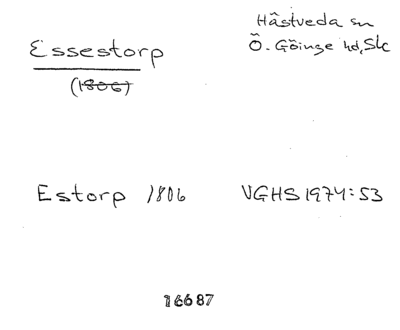 Essestorp
(1806)
Hästveda sn
Ö. Göinge hd, Sk
Estorp 1806 VGHS 1974:53
16687